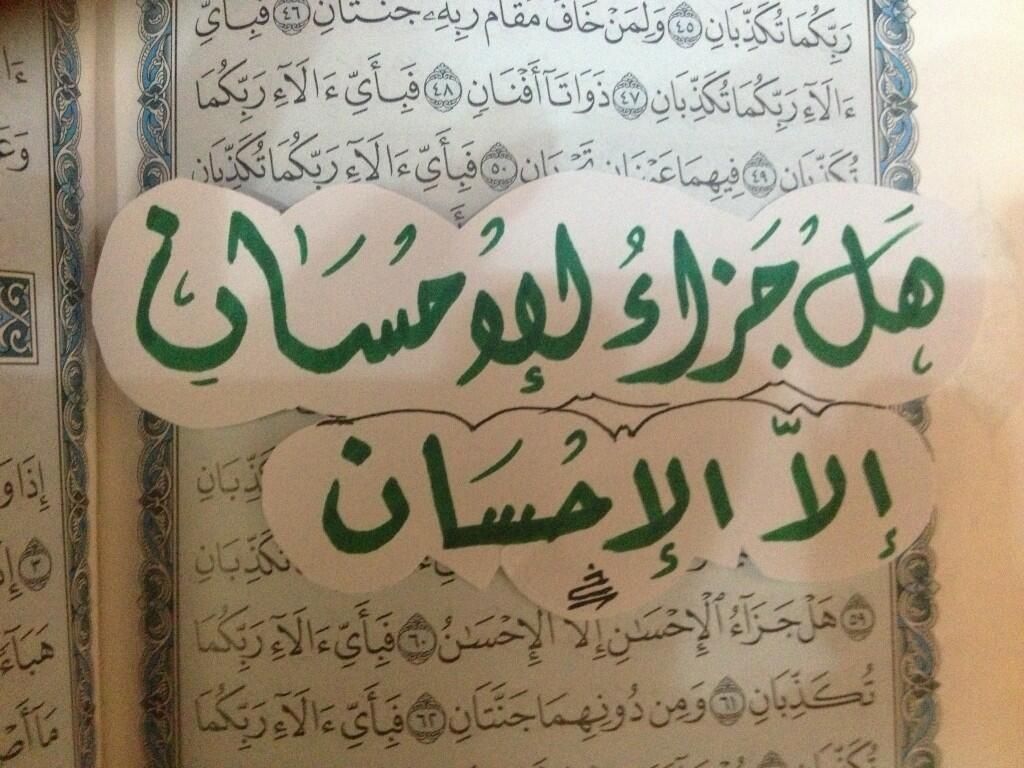 رَبِّكُمَا تُكَذِّبَانِ ٤٥ وَلِمَنْ خَافَ مَقَامَ رَبِّهِۦ جَنَّتَانِ ٤٦ فَبِأَيِّ
ءَالَآءِ رَبِّكُمَا تُكَذِّبَانِ ٤٧ ذَوَاتَآ أَفْنَانٍ ٤٨ فَبِأَيِّ ءَالَآءِ رَبِّكُمَا
تُكَذِّبَانِ ٤٩ فِيهِمَا عَيْنَانِ تَجْرِيَانِ ٥٠ فَبِأَيِّ ءَالَآءِ رَبِّكُمَا تُكَذِّبَانِ
هَلْ جَزَاءُ الْإِحْسَانِ
إِلاَّ الإِحْسَان
تُكَذِّبَانِ
تُكَذِّبَانِ
٥٩ هَلْ جَزَآءُ ٱلْإِحْسَٰنِ إِلَّا ٱلْإِحْسَٰنُ ٦٠ فَبِأَيِّ ءَالَآءِ رَبِّكُمَا
تُكَذِّبَانِ ٦١ وَمِن دُونِهِمَا جَنَّتَانِ ٦٢ فَبِأَيِّ ءَالَآءِ رَبِّكُمَا
تُكَذِّبَانِ